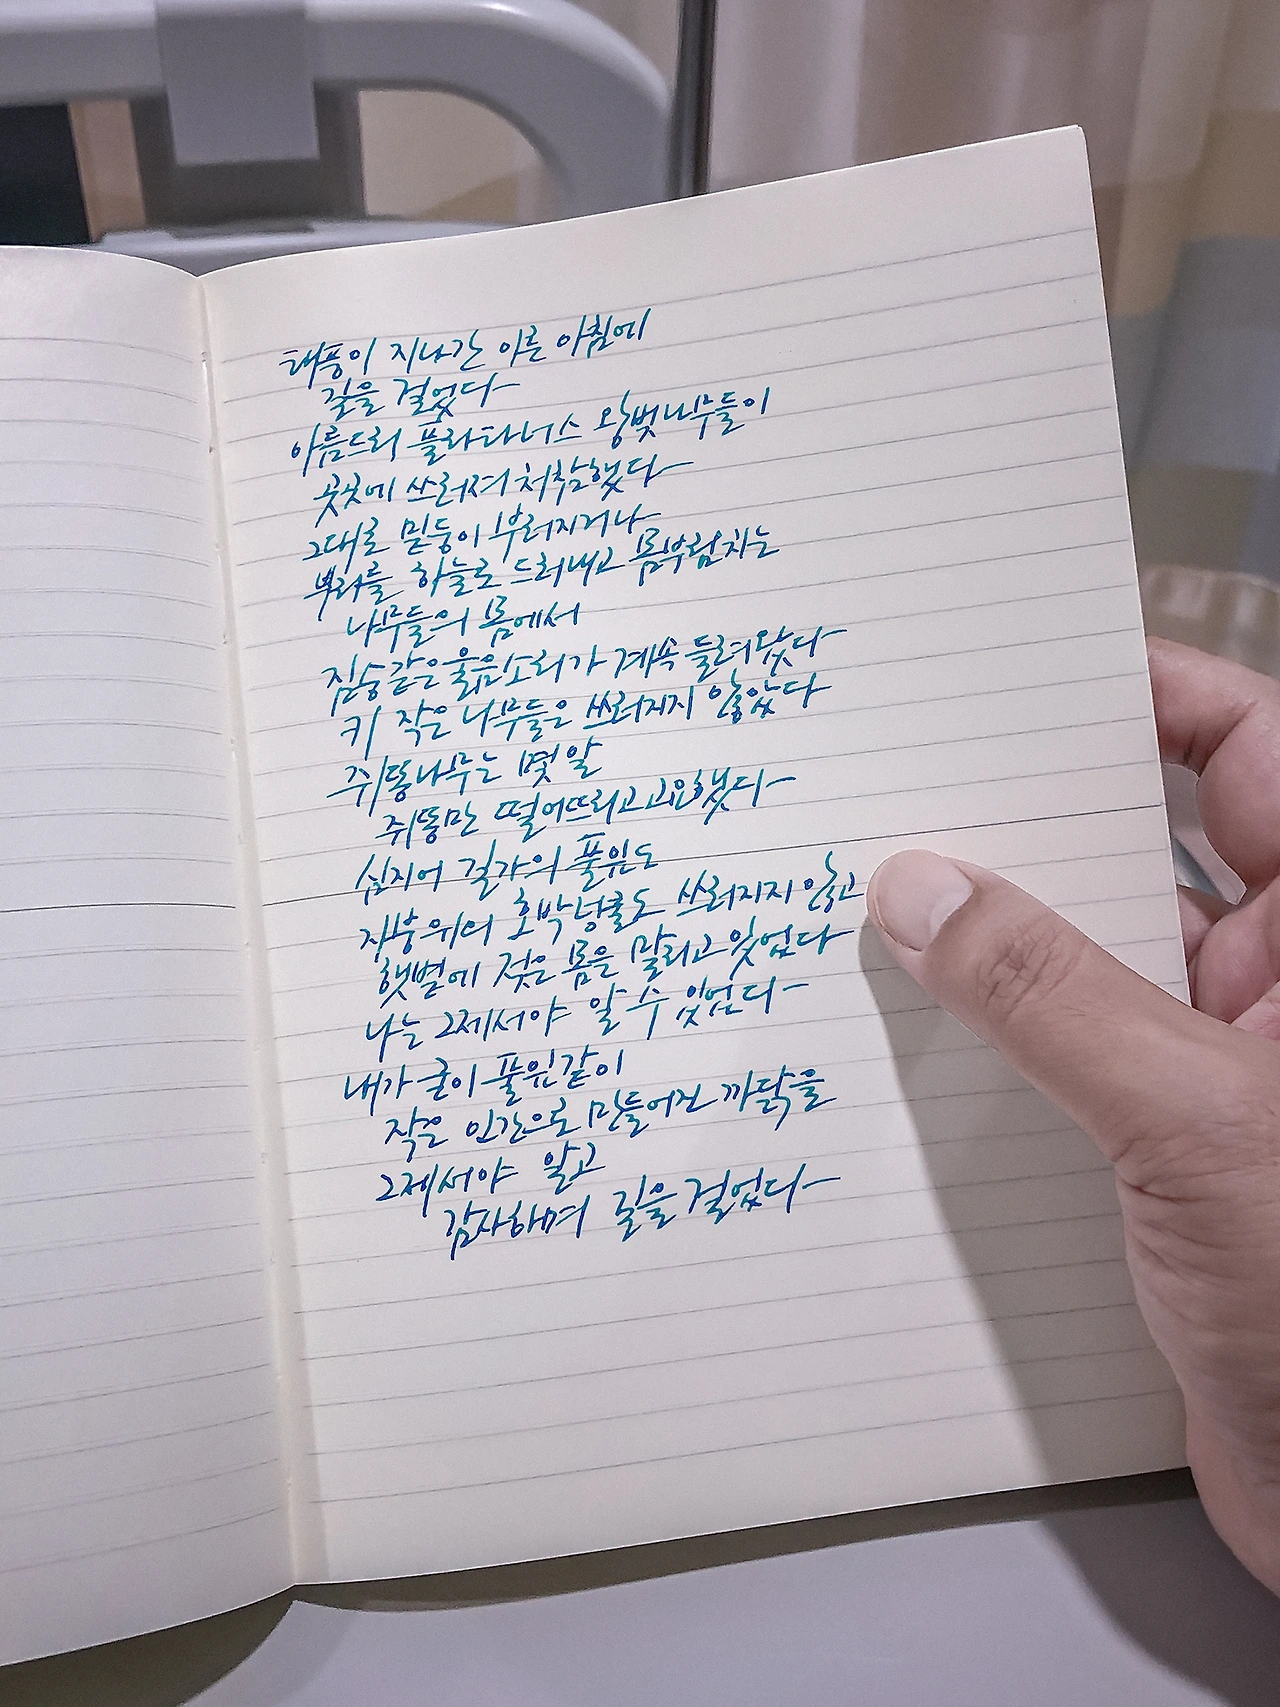 태풍이 지나간 이른 아침에
길을 걸었다
아름드리 플라타너스 왕벚나무들이
곳곳에 쓰러져 처참했다
그대로 밑둥이 부러지거나
뿌리를 하늘로 드러내고 몸부림치는
나무들의 몸에서
짐승같은 울음소리가 계속 들려왔다
키 작은 나무들은 쓰러지지 않았다
쥐똥나무는 몇 알
쥐똥만 떨어뜨리고 고요했다
심지어 길가의 풀잎도
지붕위의 호박넝쿨도 쓰러지지 않고
햇볕에 젖은 몸을 말리고 있었다
나는 그제서야 알 수 있었다
내가 굳이 풀잎같이
작은 인간으로 만들어진 까닭을
그제서야 알고
감사하며 길을 걸었다